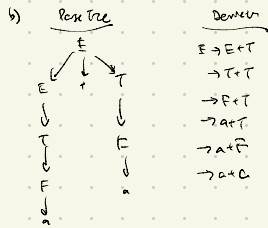 b) Parse Tree
E
E + T
T F
F a
a
Deriv
E → E + T
→ T + T
→ F + T
→ a + T
→ a + F
→ a + a